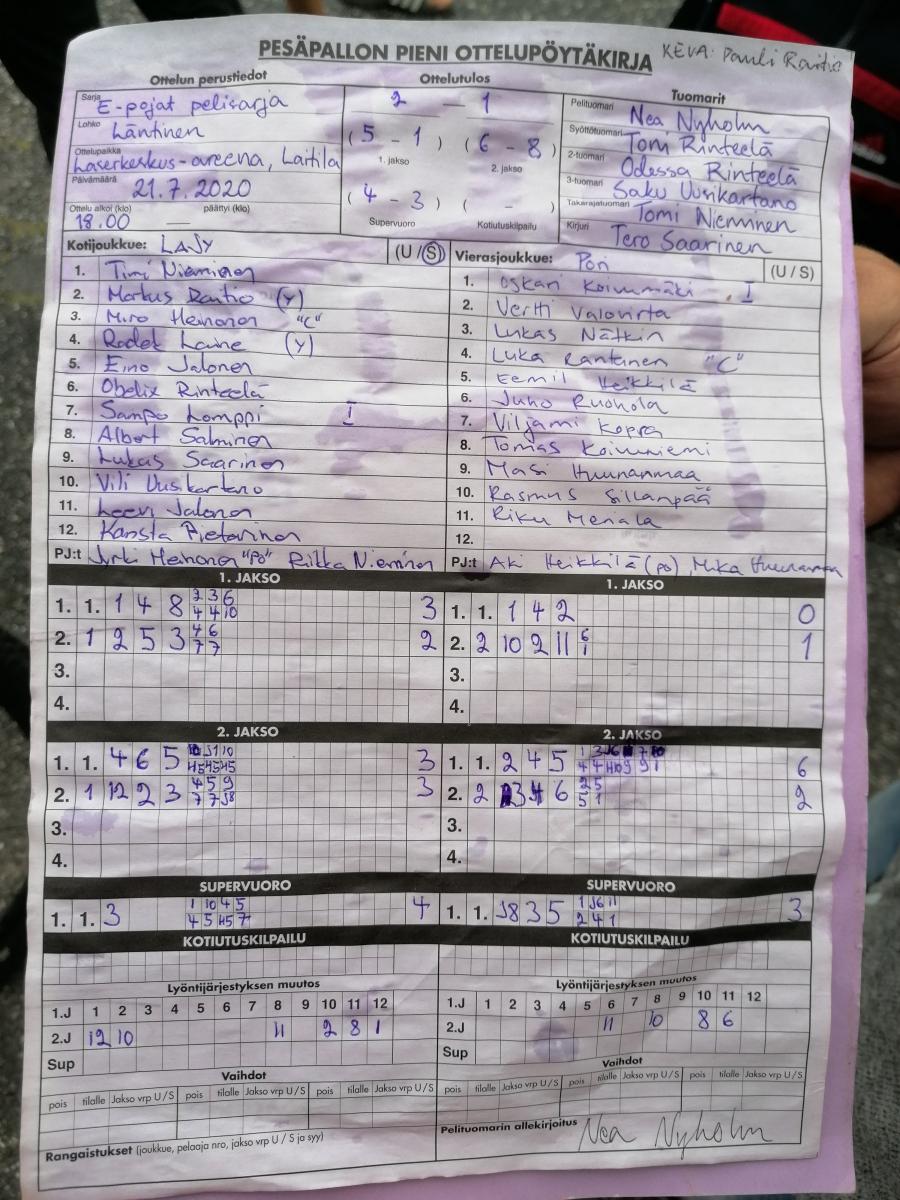 PESÄPALLON PIENI OTTELUPÖYTÄKIRJA
KEVA: Pauli Raitio
Ottelun perustiedot
Sarja E-pojat pelisarja
Lohko Läntinen
Ottelupaikka Laserkeskus-areena, Laitila
Päivämäärä 21.7.2020
Ottelu alkoi (klo) päättyi (klo)
18.00
Ottelutulos
2 – 1
(5 – 1) (6 – 8)
1. jakso 2. jakso
(4 – 3) ( – )
Supervuoro Kotiutuskilpailu
Tuomarit
Pelituomari Nea Nyholm
Syöttötuomari Tomi Rinteelä
2-tuomari Odessa Rinteelä
3-tuomari Saku Uusikartano
Takarajatuomari Tomi Nieminen
Kirjuri Tero Saarinen
Kotijoukkue: LaJy (U / S)
1. Timi Nieminen
2. Markus Raitio (Y)
3. Miro Heinonen "C"
4. Laine (Y)
5. Eino Jalonen
6. Obelix Rinteelä
7. Sampo Lomppi I
8. Albert Salminen
9. Lukas Saarinen
10. Vili Uusikartano
11. Leevi Jalonen
12. Kansta Pietarinen
PJ:t Jyrki Heinonen "PO" Riikka Nieminen
Vierasjoukkue: Pori (U / S)
1. Oskari Koivumäki I
2. Vertti Valovirta
3. Lukas Nätkin
4. Luka Rantanen "C"
5. Eemil Heikkilä
6. Juho Ruohola
7. Viljami Kopra
8. Tomas Koivuniemi
9. Masi Huunanmaa
10. Rasmus Sillanpää
11. Riku Meriala
12.
PJ:t Aki Heikkilä (PO), Mika Huunanmaa
1. JAKSO
1. 1. 1 4 8 2 3 6 3
4 4 10
2. 1 2 5 3 4 6 2
7 7
3.
4.
1. JAKSO
1. 1. 1 4 2 0
2. 2 10 2 11 6 1
1
3.
4.
2. JAKSO
1. 1. 4 6 5 3
2. 1 12 2 3 4 5 9 3
3.
4.
2. JAKSO
1. 1. 2 4 5 6
2. 2 6 2 5 2
5 1
3.
4.
SUPERVUORO
1. 1. 3 1 10 4 5 4
SUPERVUORO
1. 1. J8 3 5 1 J6 11 3
2 4 1
KOTIUTUSKILPAILU
Lyöntijärjestyksen muutos
1.J 1 2 3 4 5 6 7 8 9 10 11 12
2.J 12 10 11 2 8 1
Sup
Vaihdot
pois tilalle Jakso vrp U / S pois tilalle Jakso vrp U / S pois tilalle Jakso vrp U / S
Rangaistukset (joukkue, pelaaja nro, jakso vrp U / S ja syy)
KOTIUTUSKILPAILU
Lyöntijärjestyksen muutos
1.J 1 2 3 4 5 6 7 8 9 10 11 12
2.J 11 10 8 6
Sup
Vaihdot
pois tilalle Jakso vrp U / S pois tilalle Jakso vrp U / S pois tilalle Jakso vrp U / S
Pelituomarin allekirjoitus Nea Nyholm